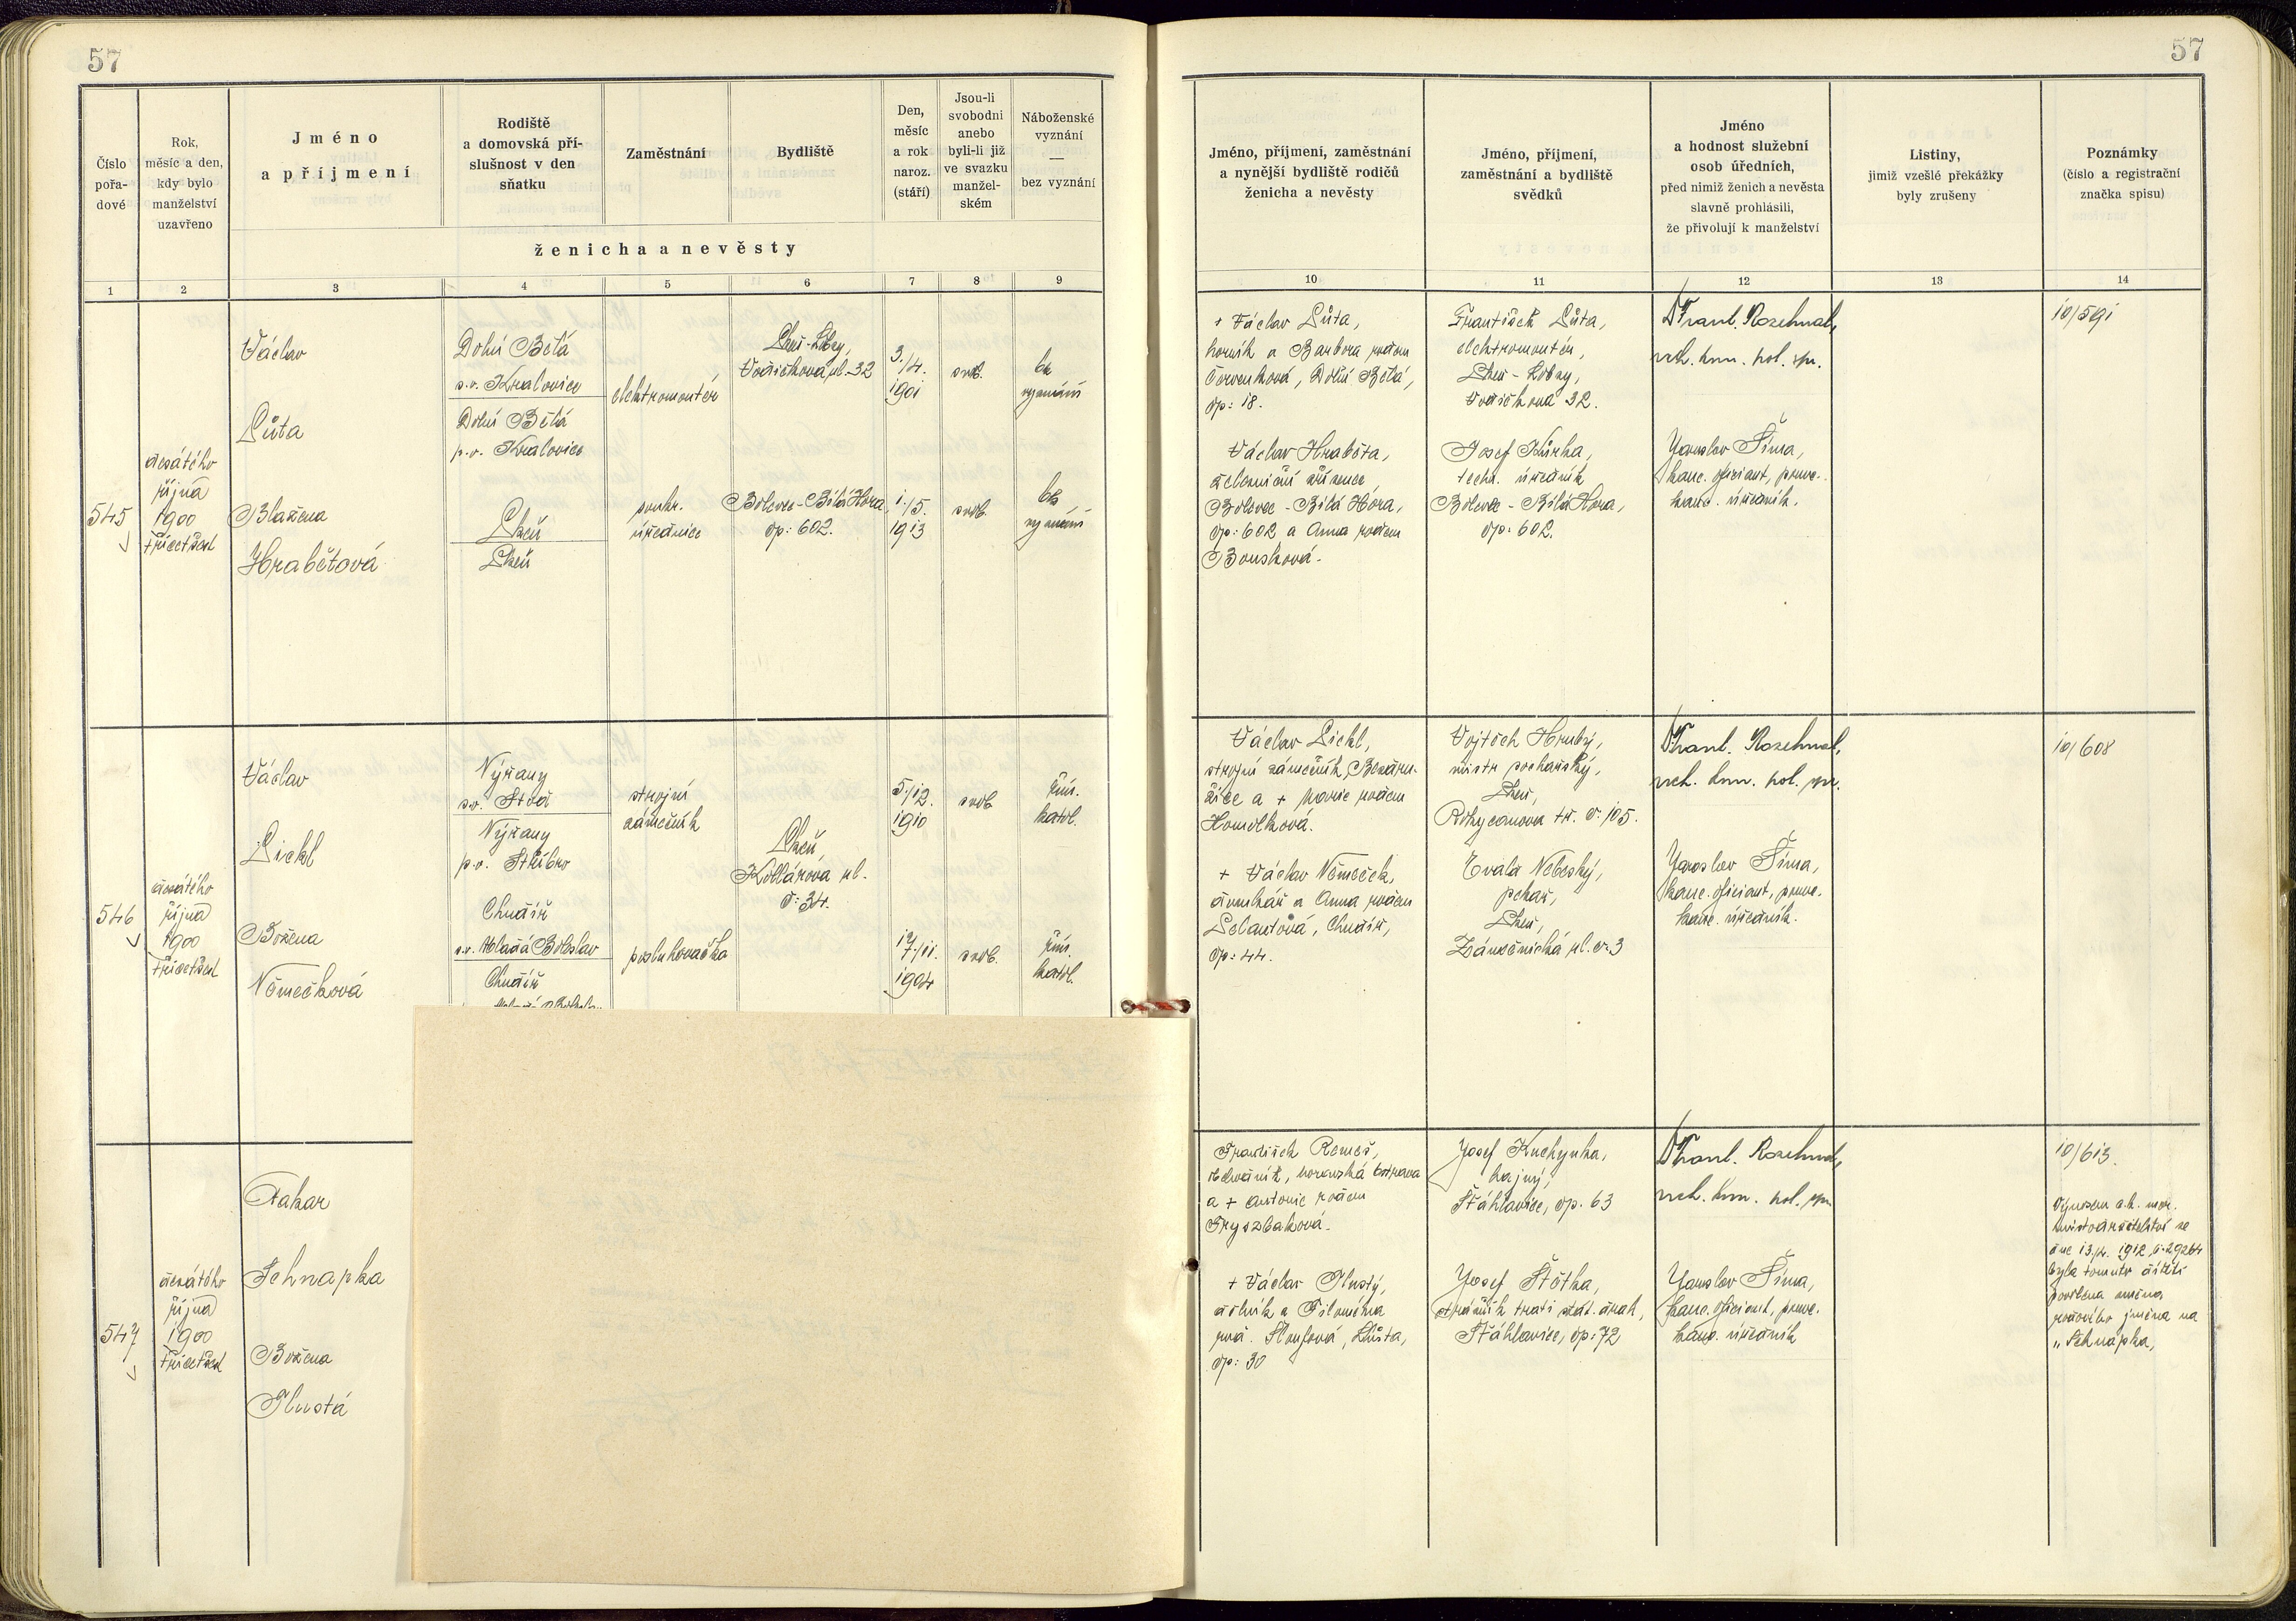 57
57
Číslo
pořa-
dové
Rok,
měsíc a den,
kdy bylo
manželství
uzavřeno
Jméno
a příjmení
Rodiště
a domovská pří-
slušnost v den
sňatku
Zaměstnání
Bydliště
Den,
měsíc
a rok
naroz.
(stáří)
Jsou-li
svobodni
anebo
byli-li již
ve svazku
manžel-
ském
Náboženské
vyznání
—
bez vyznání
ženicha a nevěsty
1 2 3 4 5 6 7 8 9
Jméno, příjmení, zaměstnání
a nynější bydliště rodičů
ženicha a nevěsty
Jméno, příjmení,
zaměstnání a bydliště
svědků
Jméno
a hodnost služební
osob úředních,
před nimiž ženich a nevěsta
slavně prohlásili,
že přivolují k manželství
Listiny,
jimiž vzešlé překážky
byly zrušeny
Poznámky
(číslo a registrační
značka spisu)
10 11 12 13 14
545
desátého
října
1900
třicetšest
Václav
Lůta
Blažena
Hrabětová
Dolní Bělá
s.o. Kralovice
Dolní Bělá
p.o. Kralovice
Plzeň
Plzeň
elektromontér
soukr.
úřednice
Plzeň-Lobzy,
Vodičkova ul. 32
Bolevec-Bílá Hora,
čp: 602.
3./4.
1901
1./5.
1913
svob.
svob.
bez
vyznání
bez
vyznání
+ Václav Lůta,
horník a Barbora rodem
Červenková, Dolní Bělá,
čp: 18.
Václav Hraběta,
železniční zřízenec
Bolevec - Bílá Hora,
čp: 602 a Anna rodem
Boušková.
František Lůta,
elektromontér,
Plzeň - Lobzy,
Vodičkova 32.
Josef Kůrka,
techn. úředník
Bolevec - Bílá Hora,
čp: 602.
Dr Frant. Rosehnal,
vrch. kom. pol. spr.
Jaroslav Šíma,
kanc. oficiant, pomoc.
kanc. úředník.
10/591
546
desátého
října
1900
třicetšest
Václav
Lickl
Božena
Němečková
Nýřany
s.o. Stod
Nýřany
p.o. Stříbro
Chudíř
s.o. Mladá Boleslav
Chudíř
strojní
zámečník
posluhovačka
Plzeň,
Kollárova ul.
č: 34.
5./12.
1910
17/11.
1904
svob.
svob.
řím.
katol.
řím.
katol.
Václav Lickl,
strojní zámečník, Bezdru-
žice a + Marie rodem
Homolková.
+ Václav Němeček,
domkář a Anna rodem
Šelautová, Chudíř,
čp: 44.
Vojtěch Hrubý,
mistr pochařský,
Plzeň,
Rokycanova tř. č: 105.
Evald Nebeský,
pekař,
Plzeň,
Zámečnická ul. č: 3
Dr Frant. Rosehnal,
vrch. kom. pol. spr.
Jaroslav Šíma,
kanc. oficiant, pomoc.
kanc. úředník.
10/608
547
desátého
října
1900
třicetšest
Otakar
Schnapka
Božena
Tlustá
František Remeš,
Moravská Ostrava
a + Antonie rodem
+ Václav Tlustý,
dělník a Filoména
rod. Lhůta,
čp: 30
Josef Kuchynka,
hajný,
Šťáhlavice, čp. 63
Josef Štětka,
strážník trati stát. drah,
Šťáhlavice, čp: 72
Dr Frant. Rosehnal,
vrch. kom. pol. spr.
Jaroslav Šíma,
kanc. oficiant, pomoc.
kanc. úředník
10/613.
Výnosem c.k. mor.
místodržitelství ze
dne 13./4. 1912 č. 29264
byla tomuto dítěti
povolena změna
rodového jména na
„Schnapka„